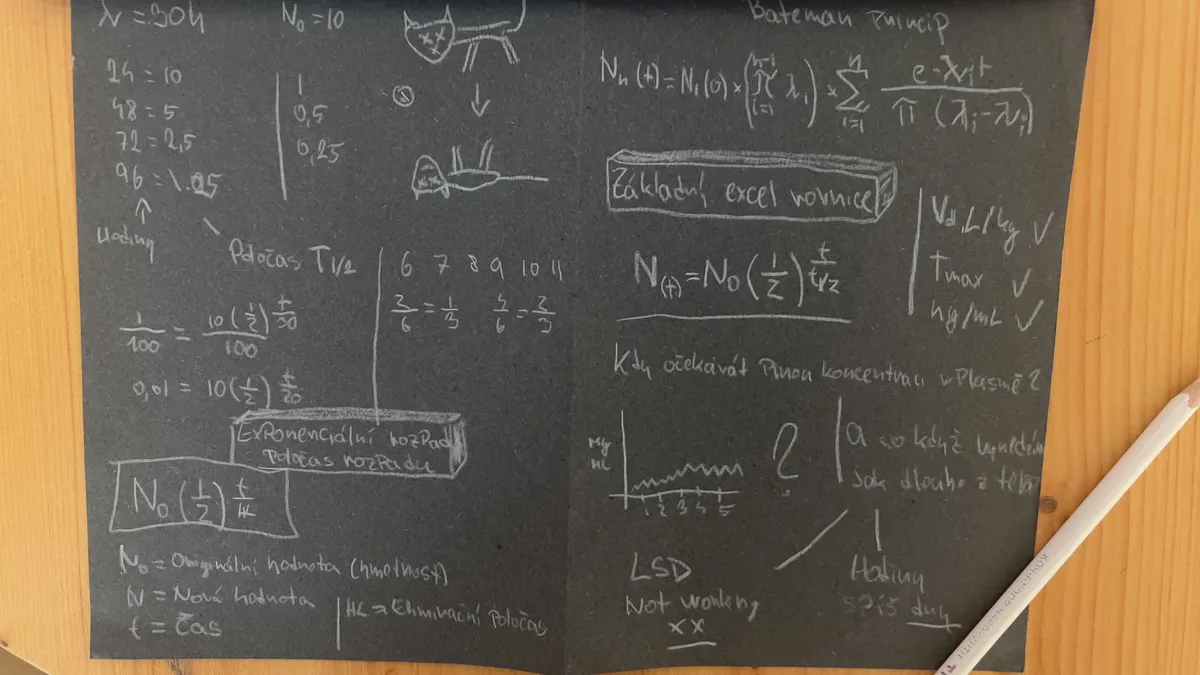 λ = 30h
N₀ = 10
24 = 10
48 = 5
72 = 2,5
96 = 1.25
1
0,5
0,25
Hodiny
Poločas T1/2
6 7 8 9 10 11
2/6 = 1/3
4/6 = 2/3
1/100 = 10(1/2)^t/30 / 100
0,01 = 10(1/2)^t/20
Exponenciální rozpad
Poločas rozpadu
N₀(1/2)^t/HL
N₀ = Originální hodnota (hmotnost)
N = Nová hodnota
t = čas
HL = Eliminační poločas
Bateman Princip
Nₙ(t) = N₁(0) × (∏ i=1 n-1 λᵢ) × ∑ i=1 n e-λᵢt / π (λⱼ-λᵢ)
Základní excel rovnice
N(t) = N₀(1/2)^t/t1/2
Vd, L/kg ✓
Tmax ✓
ng/mL ✓
Kdy očekávat Plnou koncentraci v Plasmě?
1 2 3 4 5
?
a co když vynechám
jak dlouho z těla
LSD
Not working
xx
Hodiny
spíš dny
KOH-I-NOOR HARDTMUTH